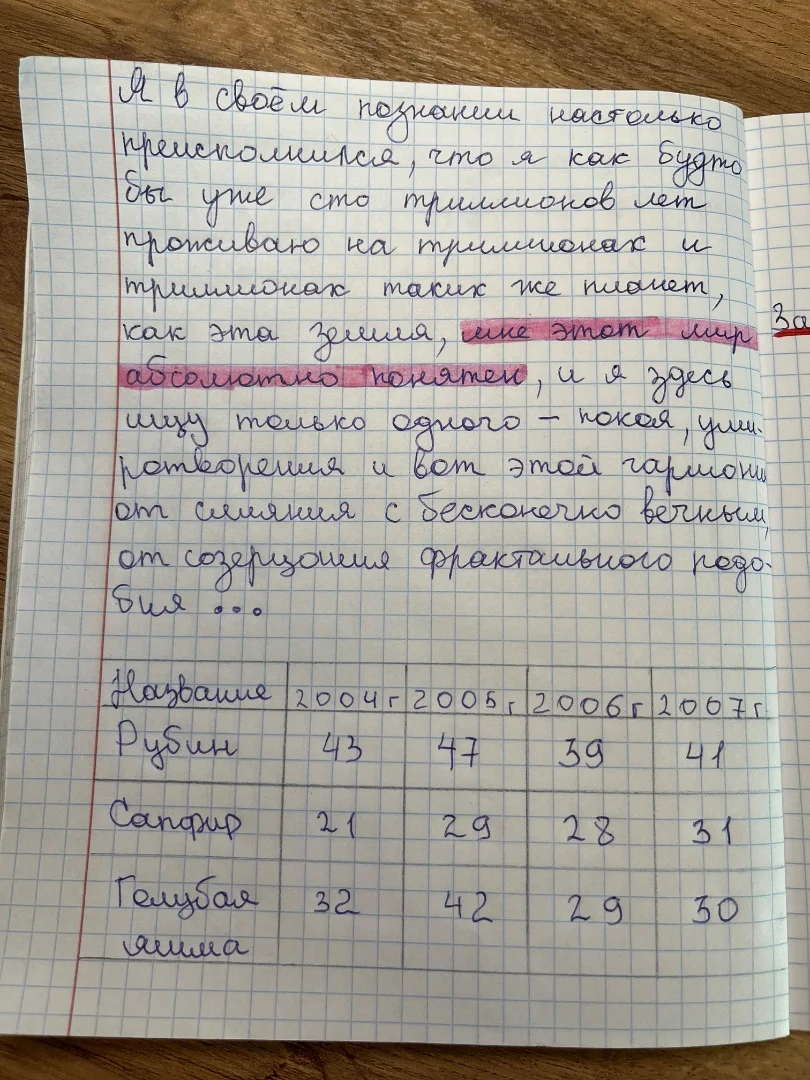 Я в своём познании настолько
преисполнился, что я как будто
бы уже сто триллионов лет
проживаю на триллионах и
триллионах таких же планет,
как эта Земля, мне этот мир
абсолютно понятен, и я здесь
ищу только одного – покоя, уми-
ротворения и вот этой гармонии
от слияния с бесконечно вечным,
от созерцания фрактального подо-
бия ...
Название 2004г 2005г 2006г 2007г
Рубин 43 47 39 41
Сапфир 21 29 28 31
Голубая 32 42 29 30
яшма
За